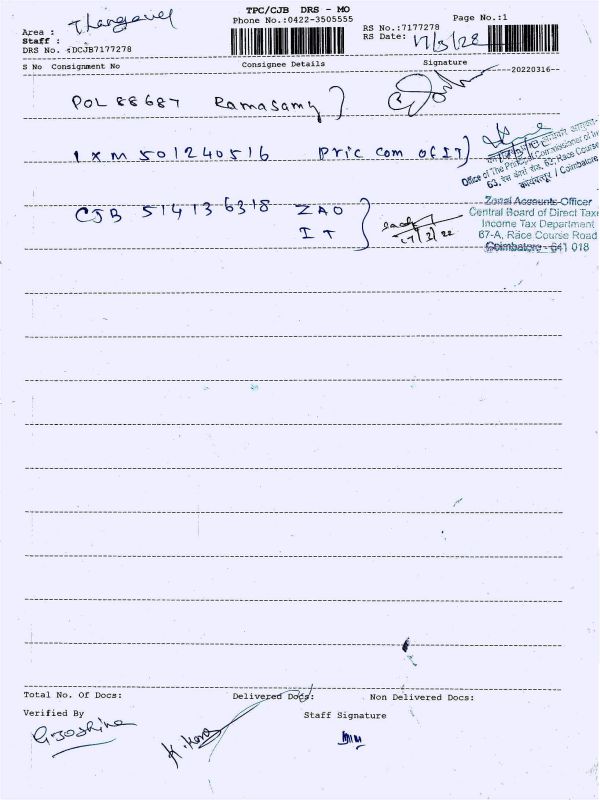 TPC/CJB DRS - MO
Phone No.:0422-3505555
Page No.:1
Area : Thangavel
Staff :
DRS No. :DCJB7177278
RS No.:7177278
RS Date: 17/3/22
S No Consignment No Consignee Details Signature
20220316
POL 88687 Ramasamy
IXM 501240516 Pric com of IT
Office of The Principal Commissioner of
63, Race Course
/ Coimbatore
CJB 514136318 ZAO
IT
17/3/22
Zonal Accounts Officer
Central Board of Direct Taxe
Income Tax Department
67-A, Race Course Road
Coimbatore - 641 018
Total No. Of Docs: Delivered Docs: Non Delivered Docs:
Verified By Staff Signature